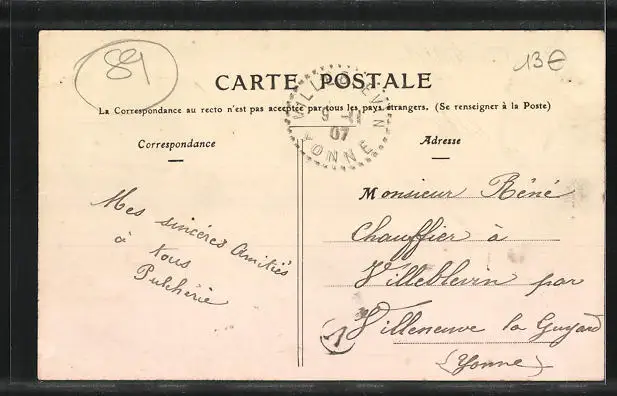 89
13€
CARTE POSTALE
La Correspondance au recto n'est pas acceptée par tous les pays étrangers. (Se renseigner à la Poste)
VILLEBLEVIN
07
YONNE
Correspondance
Adresse
Mes sincères Amitiés
à tous
Pulchérie
Monsieur Réné
Chauffier à
Villeblevin par
Villeneuve la Guyard
(Yonne)